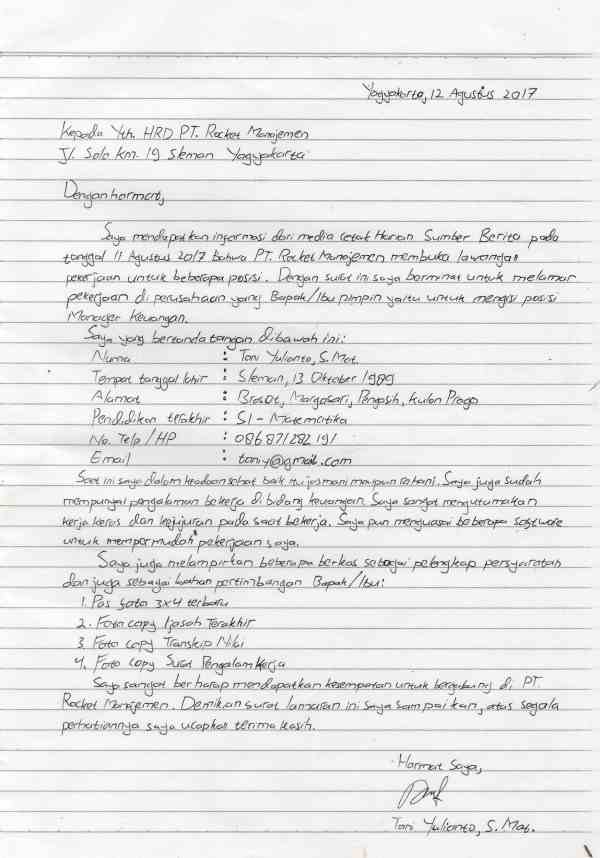 Yogyakarta, 12 Agustus 2017
Kepada Yth. HRD PT. Rocket Manajemen
Jl. Solo Km. 19 Sleman Yogyakarta
Dengan hormat,
Saya mendapatkan informasi dari media cetak Harian Sumber Berita pada
tanggal 11 Agustus 2017 bahwa PT. Rocket Manajemen membuka lawangan
pekerjaan untuk beberapa posisi. Dengan surat ini saya berminat untuk melamar
pekerjaan di perusahaan yang Bapak/Ibu pimpin yaitu untuk mengisi posisi
Manager Keuangan.
Saya yang bertanda tangan dibawah ini:
Nama : Toni Yulianto, S.Mat.
Tempat tanggal lahir : Sleman, 13 Oktober 1989
Alamat : Brosot, Margosari, Pengasih, Kulon Progo
Pendidikan terakhir : S1 - Matematika
No. Telp/HP : 086871282191
Email : toniy@gmail.com
Saat ini saya dalam keadaan sehat baik itu jasmani maupun rohani. Saya juga sudah
mempunyai pengalaman bekerja di bidang keuangan. Saya sangat mengutamakan
kerja keras dan kejujuran pada saat bekerja. Saya pun menguasai beberapa software
untuk mempermudah pekerjaan saya.
Saya juga melampirkan beberapa berkas sebagai pelengkap persyaratan
dan juga sebagai bahan pertimbangan Bapak/Ibu:
1. Pas foto 3x4 terbaru
2. Foto copy Ijasah Terakhir
3. Foto copy Transkip Nilai
4. Foto copy Surat Pengalam Kerja
Saya sangat berharap mendapatkan kesempatan untuk bergabung di PT.
Rocket Manajemen. Demikian surat lamaran ini saya sampaikan, atas segala
perhatiannya saya ucapkan terima kasih.
Hormat Saya,
Toni Yulianto, S. Mat.